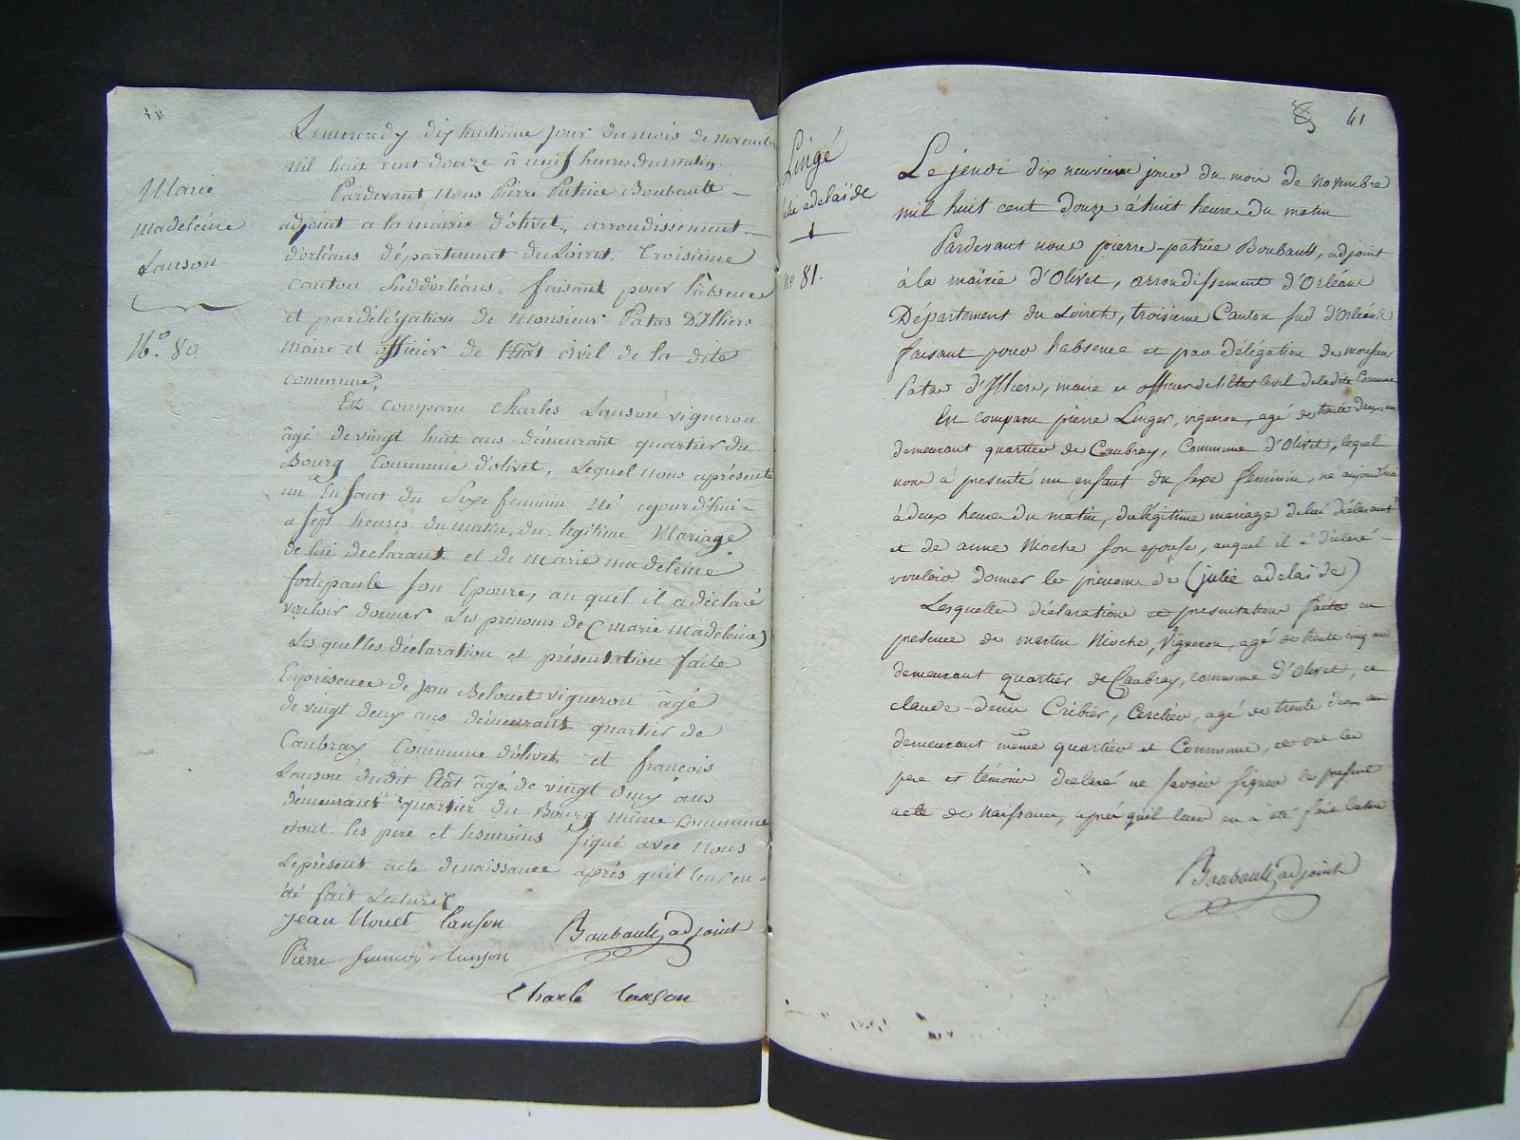 Marie
Madeleine
Lanson
N.° 80
Le mercredy dix huitième jour du mois de novembre
mil huit cent douze à neuf heures du matin.
Pardevant Nous Pierre Patrice Boubault
adjoint a la mairie d'olivet, arrondissement
d'orléans département du Loiret, troisième
canton Sud d'orléans, faisant pour l'absence
et par délégation de Monsieur Patas D'Illiers
maire et officier de l'état civil de la dite
commune,
Est comparu Charles Lanson vigneron
âgé de vingt huit ans demeurant quartier du
Bourg Commune d'olivet, Lequel nous a présenté
un Enfant du Sexe feminin Né aujourd'hui
a sept heures du matin, du légitime Mariage
de lui déclarant et de Marie madeleine
son Epouse, au quel il a déclaré
vouloir donner Les prénoms de (Marie Madeleine)
Les quelles déclaration et présentation faite
En présence de Jean vigneron âgé
de vingt deux ans demeurant quartier de
Caubray Commune d'olivet et françois
Lanson du dit Etat âgé de vingt deux ans
démeurant quartier du Bourg même Commune
et ont les pere et tesmoins signé avec Nous
Le présent acte de naissance après qu'il leur en
été fait Lecture
Jean Lanson
Boubault, adjoint
Pierre françois Lanson
Charle Lanson
8 61
Lingé
julie adelaïde
N° 81.
Le jeudi dix neuvieme jour du mois de Novembre
mil huit cent douze à huit heures du matin
Pardevant nous pierre-patrice Boubault, adjoint
à la mairie d'Olivet, arrondissement d'Orléans
Département du Loiret, troisieme Canton sud d'Orléans
faisant pour l'absence et par délégation de monsieur
Patas d'Illiers, maire et officier de l'état Civil de la dite Commune
Est comparu pierre Linger, vigneron, agé de trente deux ans
demeurant quartier de Caubray, Commune d'Olivet, lequel
nous à presenté un enfant du sexe feminin, né aujourd'hui
à deux heures du matin, du légitime mariage de lui déclarant
et de anne Nioche son epouse, auquel il à déclaré
vouloir donner les prenoms de (julie adelaïde)
Lesquelles déclaration et presentation faite en
presence de martin Nioche, Vigneron, agé de trente cinq ans
demeurant quartier de Caubray, commune d'Olivet, et
claude-denis Cribier, Cerclier, agé de trente deux ans
demeurant même quartier et Commune, et ont les
pere et témoins déclaré ne savoir signer le present
acte de Naissance, après qu'il leur en à été fait lecture
Boubault, adjoint